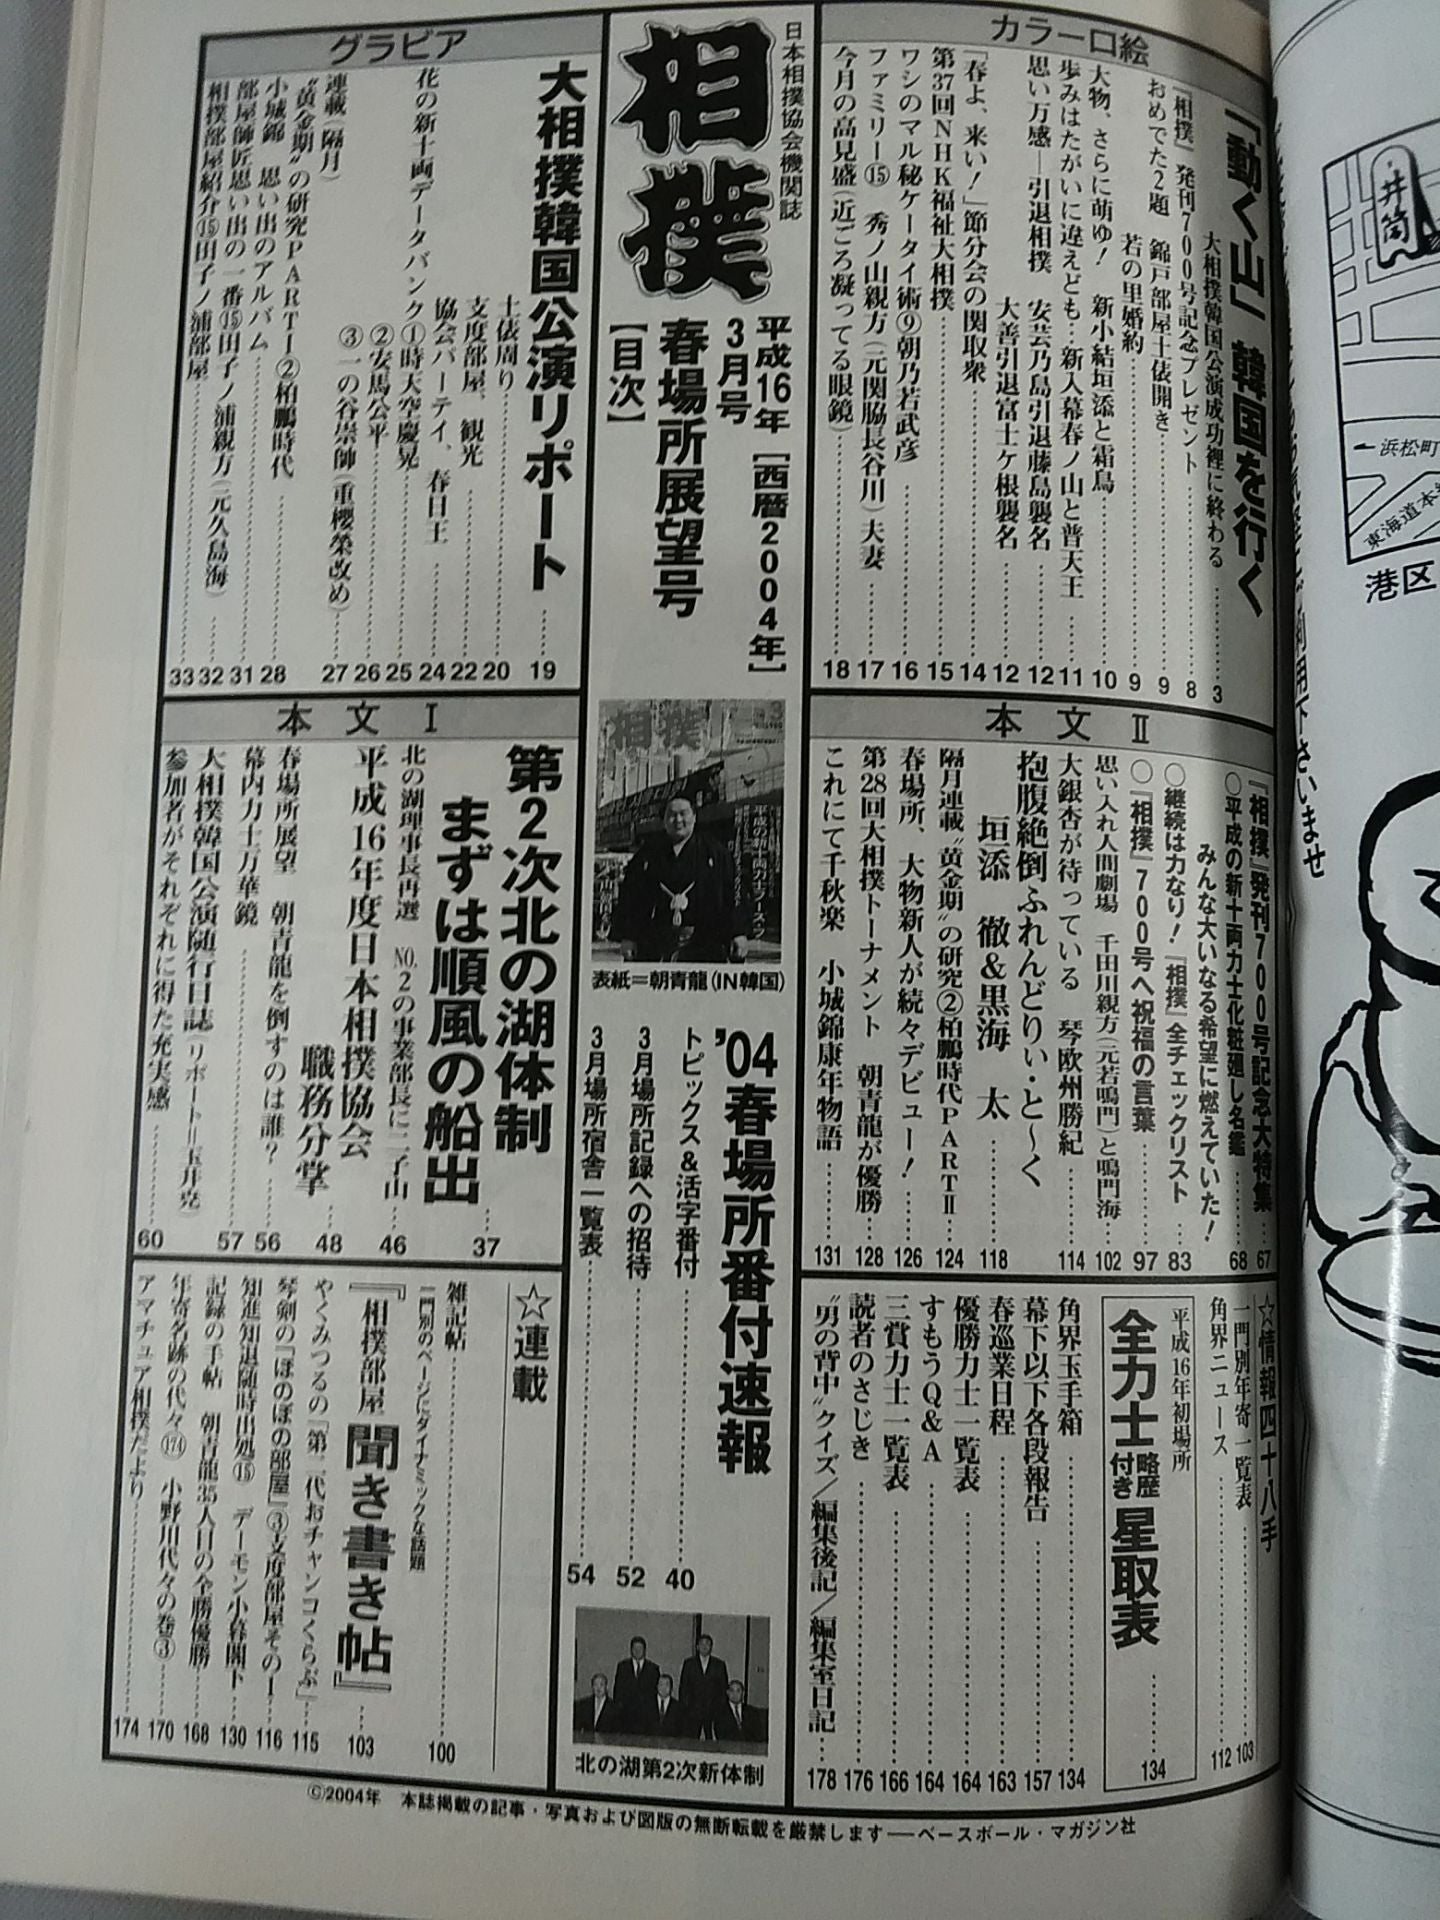 カラー口絵
「動く山」韓国を行く
大相撲韓国公演成功裡に終わる……3
『相撲』発刊700号記念プレゼント……8
おめでた2題 錦戸部屋土俵開き……9
若の里婚約……9
大物、さらに萌ゆ! 新小結垣添と霜鳥……10
歩みはたがいに違えども…新入幕春ノ山と普天王……11
思い万感―引退相撲 安芸乃島引退藤島襲名……12
大善引退富士ケ根襲名……12
「春よ、来い!」節分会の関取衆……14
第37回NHK福祉大相撲……15
ワシのマル秘ケータイ術⑨朝乃若武彦……16
ファミリー⑮ 秀ノ山親方(元関脇長谷川)夫妻……17
今月の高見盛(近ごろ凝ってる眼鏡)……18
日本相撲協会機関誌
相撲
平成16年[西暦2004年]
3月号
春場所展望号
【目次】
表紙=朝青龍(IN韓国)
グラビア
大相撲韓国公演リポート……19
土俵周り……20
支度部屋、観光……22
協会パーティ、春日王……24
花の新十両データバンク①時天空慶晃……25
②安馬公平……26
③一の谷崇師(重櫻榮改め)……27
連載(隔月)
“黄金期”の研究PARTⅠ②柏鵬時代……28
小城錦 思い出のアルバム……31
部屋師匠思い出の一番⑮田子ノ浦親方(元久島海)……32
相撲部屋紹介⑮田子ノ浦部屋……33
本文Ⅱ
『相撲』発刊700号記念大特集……67
○平成の新十両力士化粧廻し名鑑……68
みんな大いなる希望に燃えていた!
○継続は力なり!『相撲』全チェックリスト……83
○『相撲』700号へ祝福の言葉……97
思い入れ人間劇場 千田川親方(元若鳴門)と鳴門海……102
大銀杏が待っている 琴欧州勝紀……114
抱腹絶倒ふれんどりぃ・と〜く
垣添 徹&黒海 太……118
隔月連載“黄金期”の研究②柏鵬時代PARTⅡ……124
春場所、大物新人が続々デビュー!……126
第28回大相撲トーナメント 朝青龍が優勝……128
これにて千秋楽 小城錦康年物語……131
’04春場所番付速報
トピックス&活字番付……40
3月場所記録への招待……52
3月場所宿舎一覧表……54
北の湖第2次新体制
本文Ⅰ
第2次北の湖体制
まずは順風の船出……37
北の湖理事長再選 NO.2の事業部長に二子山……46
平成16年度日本相撲協会
職務分掌……48
春場所展望 朝青龍を倒すのは誰?……56
幕内力士万華鏡……57
大相撲韓国公演随行日誌(リポート=玉井堯)
参加者がそれぞれに得た充実感……60
☆情報四十八手
一門別年寄一覧表……103
角界ニュース……112
平成16年初場所
全力士略歴付き星取表……134
角界玉手箱……134
幕下以下各段報告……157
春巡業日程……163
優勝力士一覧表……164
すもうQ&A……164
三賞力士一覧表……166
読者のさじき……176
“男の背中”クイズ/編集後記/編集室日記……178
☆連載
雑記帖……100
一門別のページにダイナミックな話題
『相撲部屋聞き書き帖』……103
やくみつるの「第二代おチャンコくらぶ」……115
琴剣の「ほのぼの部屋」③支度部屋その1……116
知進知退随時出処⑮ デーモン小暮閣下……130
記録の手帖 朝青龍35人目の全勝優勝……168
年寄名跡の代々(174) 小野川代々の巻③……170
アマチュア相撲だより……174
©2004年 本誌掲載の記事・写真および図版の無断転載を厳禁します――ベースボール・マガジン社
井筒
←浜松町
東海道本
港区
利用下さいませ